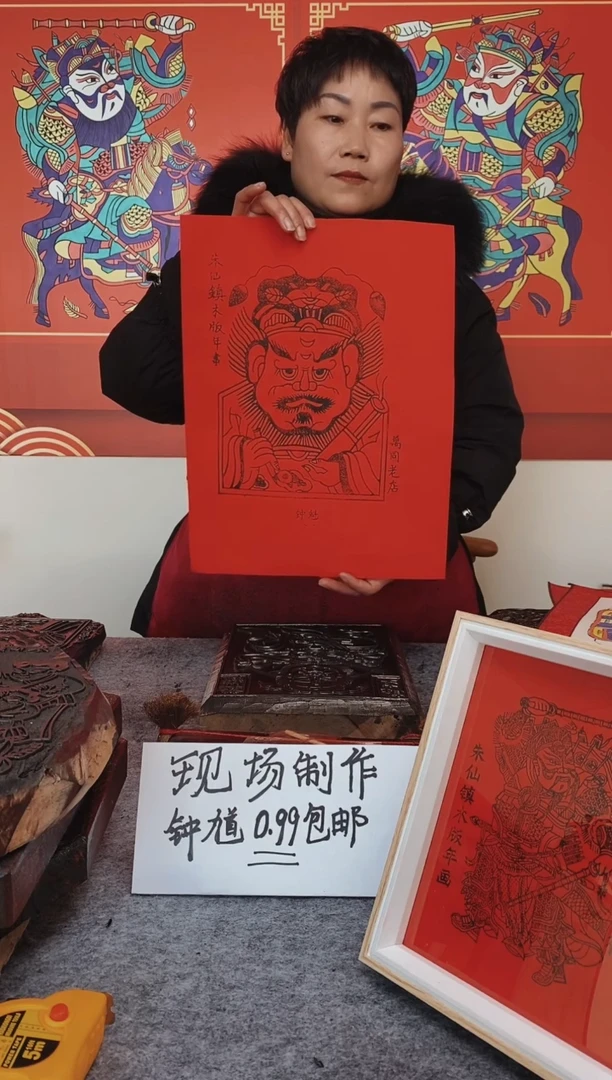 朱仙鎮木版年畫
萬同老店
钟馗
现场制作
钟馗0.99包邮
朱仙镇木版年画
5m